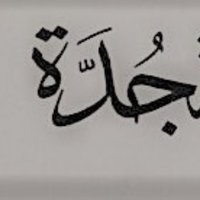 جُدَّة